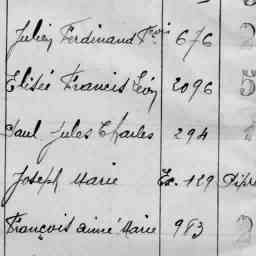 Julien Ferdinand Fçois 676 2
Elisée Francis Léon 2096 5
Paul Jules Charles 294
Joseph Marie Ex. 129
François Aimé Marie 983 2